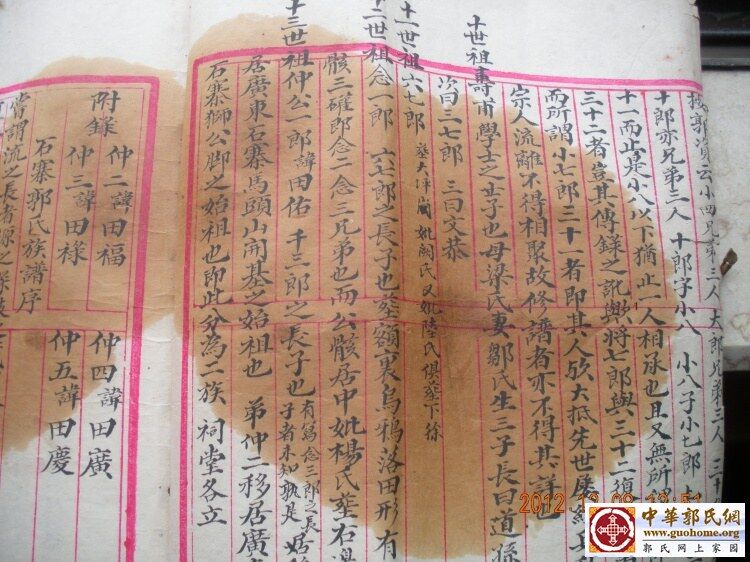 按郭濱云小四兄弟三人 太郎兄弟三人
十郎亦兄弟三人 十郎字小八 小八子小七郎
十一而止是小八以下猶止一人相承也且又無所
三十二者豈其傳錄之訛與將七郎與三十二復
而所謂小七郎三十一者即其人歟大抵先世屢經
宗人流離不得相聚故修譜者亦不得其詳也
十世祖壽甫 學士之子也母梁氏妻鄒氏生三子長曰道孫
次曰三七郎 三曰文恭
十一世祖六七郎 葬大坪崗妣闕氏又妣陸氏俱葬下徐
十二世祖念一郎 六七郎之長子也葬額裏烏鴉落田形有
骸三確郎念二念三兄弟也而公骸居中妣楊氏葬石
十三世祖仲公一郎諱田佑 千三郎之長子也 有寫念三郎之長子者未知孰是
居廣東石寨馬頭山開基之始祖也 弟仲二移居廣
石寨獅公脚之始祖也即此分為二族 祠堂各立
附錄 仲二諱田福 仲四諱田廣
仲三諱田祿 仲五諱田慶
石寨郭氏族譜序
嘗謂流之長者源之
2012 12 09
中華郭氏網
www.guohome.org
郭氏网上家园